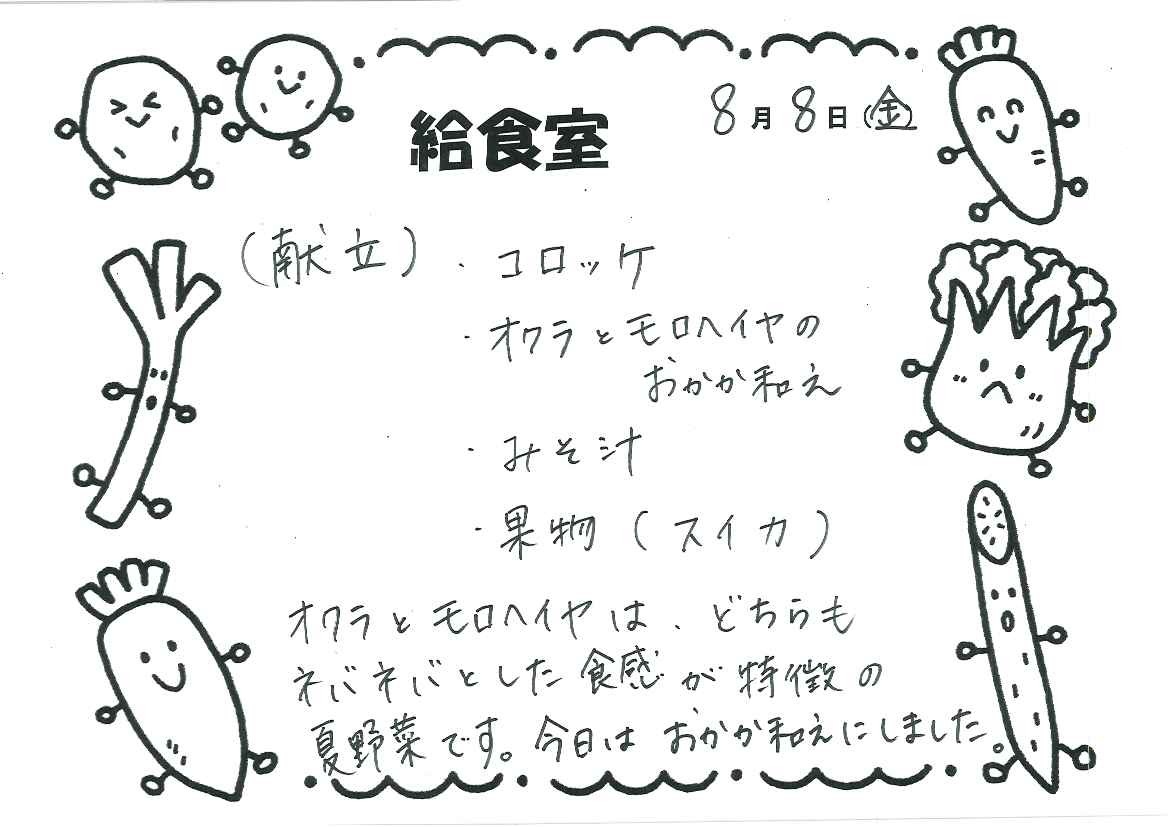 給食室
8月8日(金)
(献立)・コロッケ
・オクラとモロヘイヤの
おかか和え
・みそ汁
・果物(スイカ)
オクラとモロヘイヤは、どちらも
ネバネバとした食感が特徴の
夏野菜です。今日はおかか和えにしました。